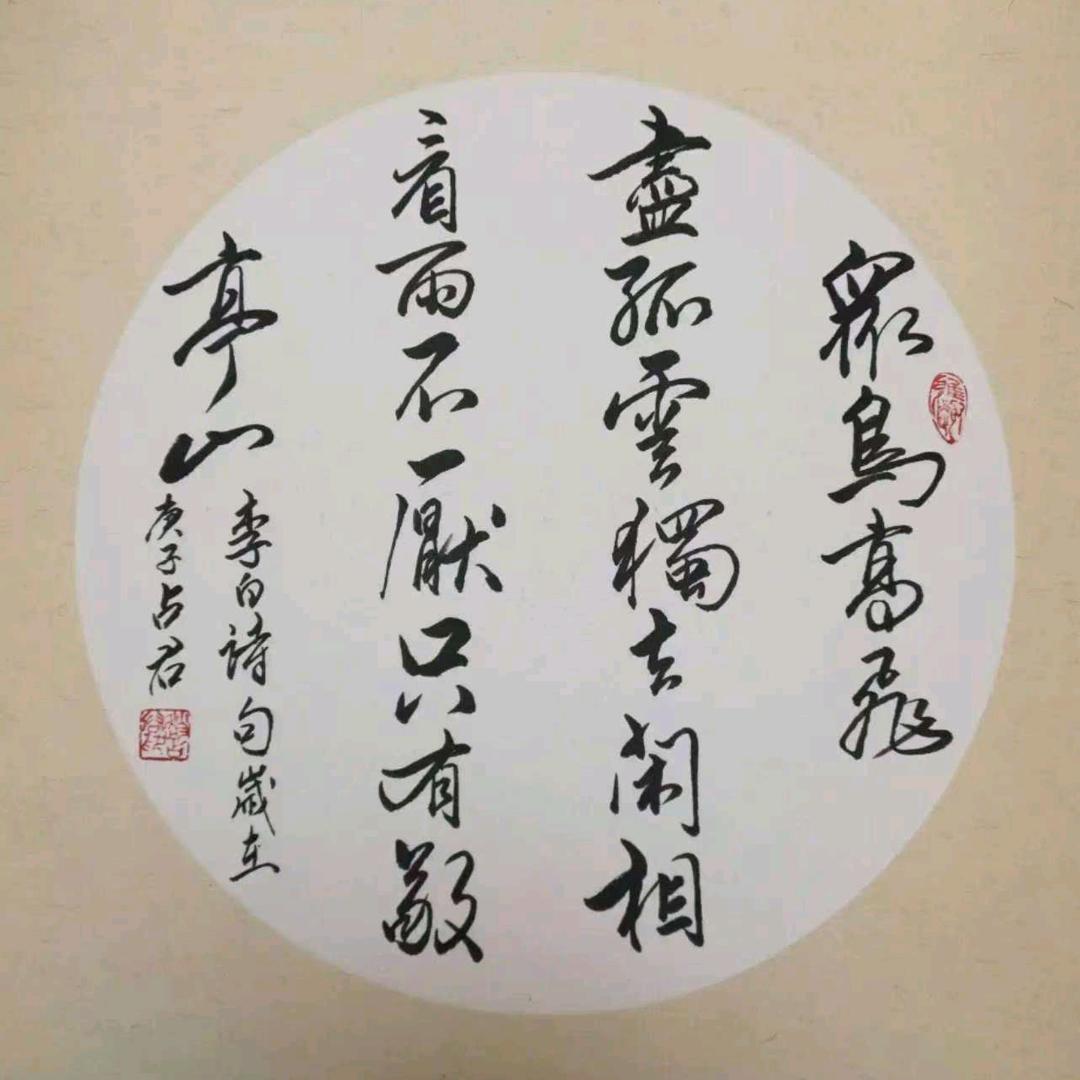 眾鳥高飛
盡孤雲獨去閑相
看兩不厭只有敬
亭山
李白詩句歲在
庚子占君